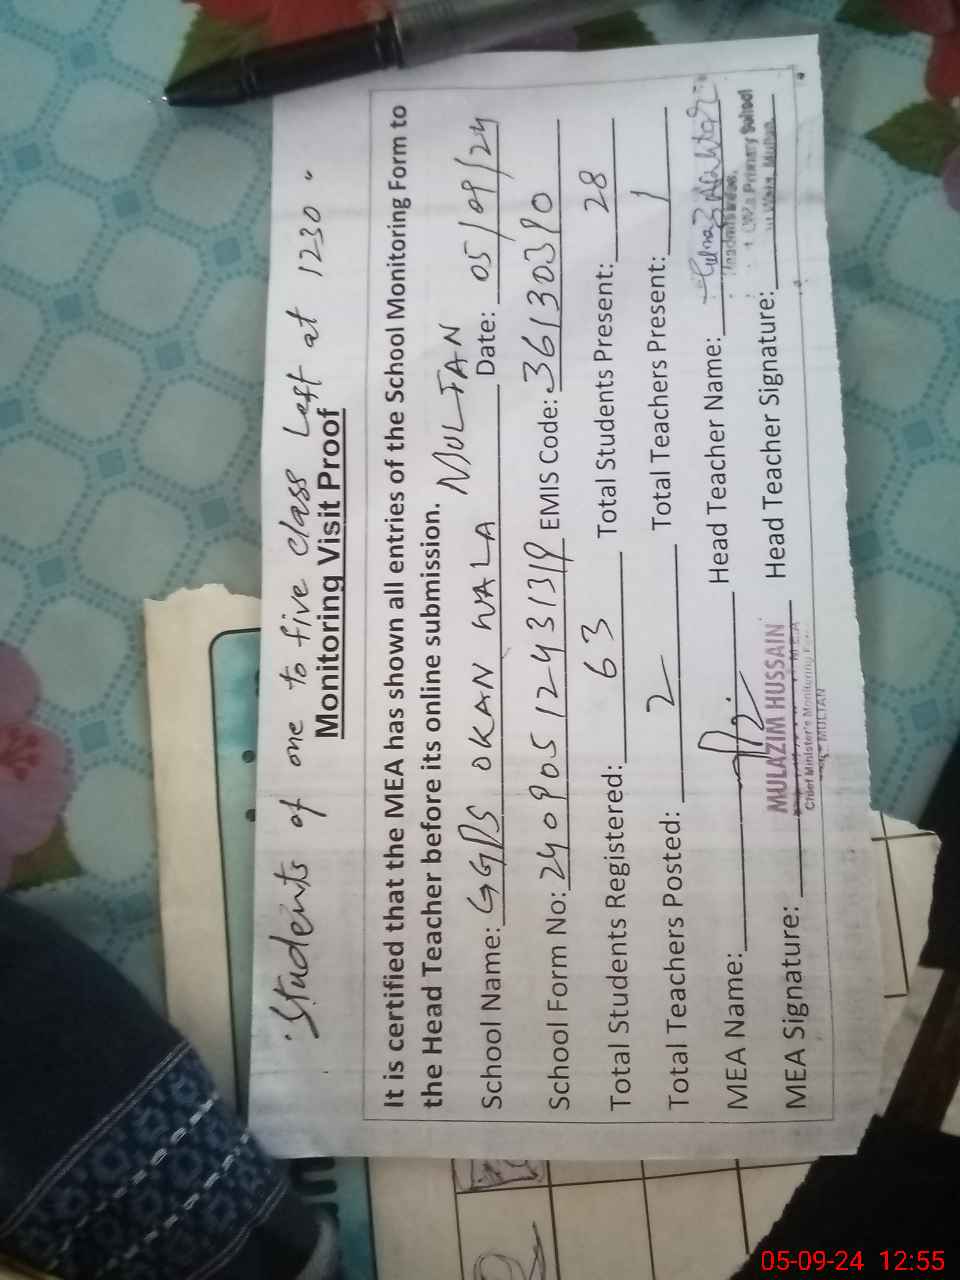 "Students of one to five class Left at 1230 "
Monitoring Visit Proof
It is certified that the MEA has shown all entries of the School Monitoring Form to
the Head Teacher before its online submission.
School Name: GGPS OKAN WALA MULTAN Date: 05/09/24
School Form No: 24090512431319 EMIS Code: 36130390
Total Students Registered: 63 Total Students Present: 28
Total Teachers Posted: 2 Total Teachers Present: 1
MEA Name: Head Teacher Name: Gulnaz Akhtar
Headmistress,
Primary School
Wala, Multan
MEA Signature: MULAZIM HUSSAIN Head Teacher Signature:
M.E.A
Chief Minister's Monitoring
MULTAN
05-09-24 12:55